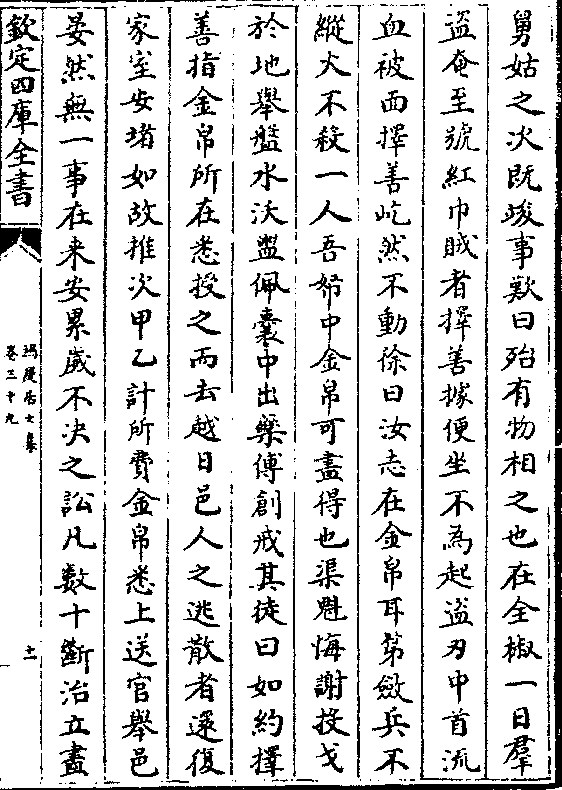 舅姑之次既竣事歎曰殆有物相之也在全椒一日羣
盗奄至號紅巾賊者擇善據便坐不為起盗刃中首流
血被面擇善屹然不動徐曰汝志在金帛耳第斂兵不
縱火不殺一人吾帑中金帛可盡得也渠魁悔謝投戈
於地舉盤水沃盥佩囊中出藥傅創戒其徒曰如約擇
善指金帛所在悉授之而去越日邑人之逃散者還復
家室安堵如故推次甲乙計所費金帛悉上送官舉邑
晏然無一事在来安累嵗不决之訟凡數十斷治立盡
欽定四庫全書
鴻慶居士集
卷三十九
十一